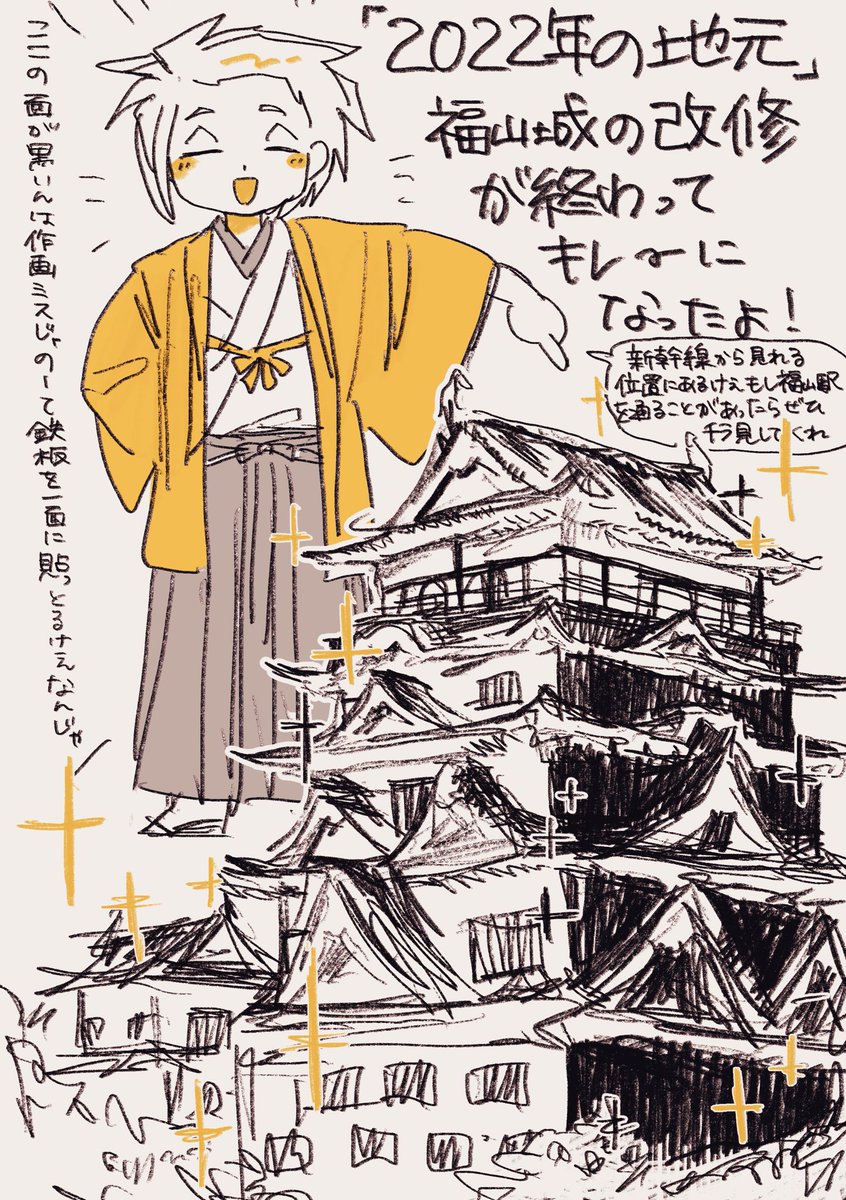 「2022年の地元」
福山城の改修
が終わって
キレーに
なったよ!
新幹線から見れる
位置にあるけえもし福山駅
を通ることがあったらぜひ
チラ見してくれ
ここの面が黒いんは作画ミスじゃのーて鉄板を一面に貼っとるけえなんじゃ